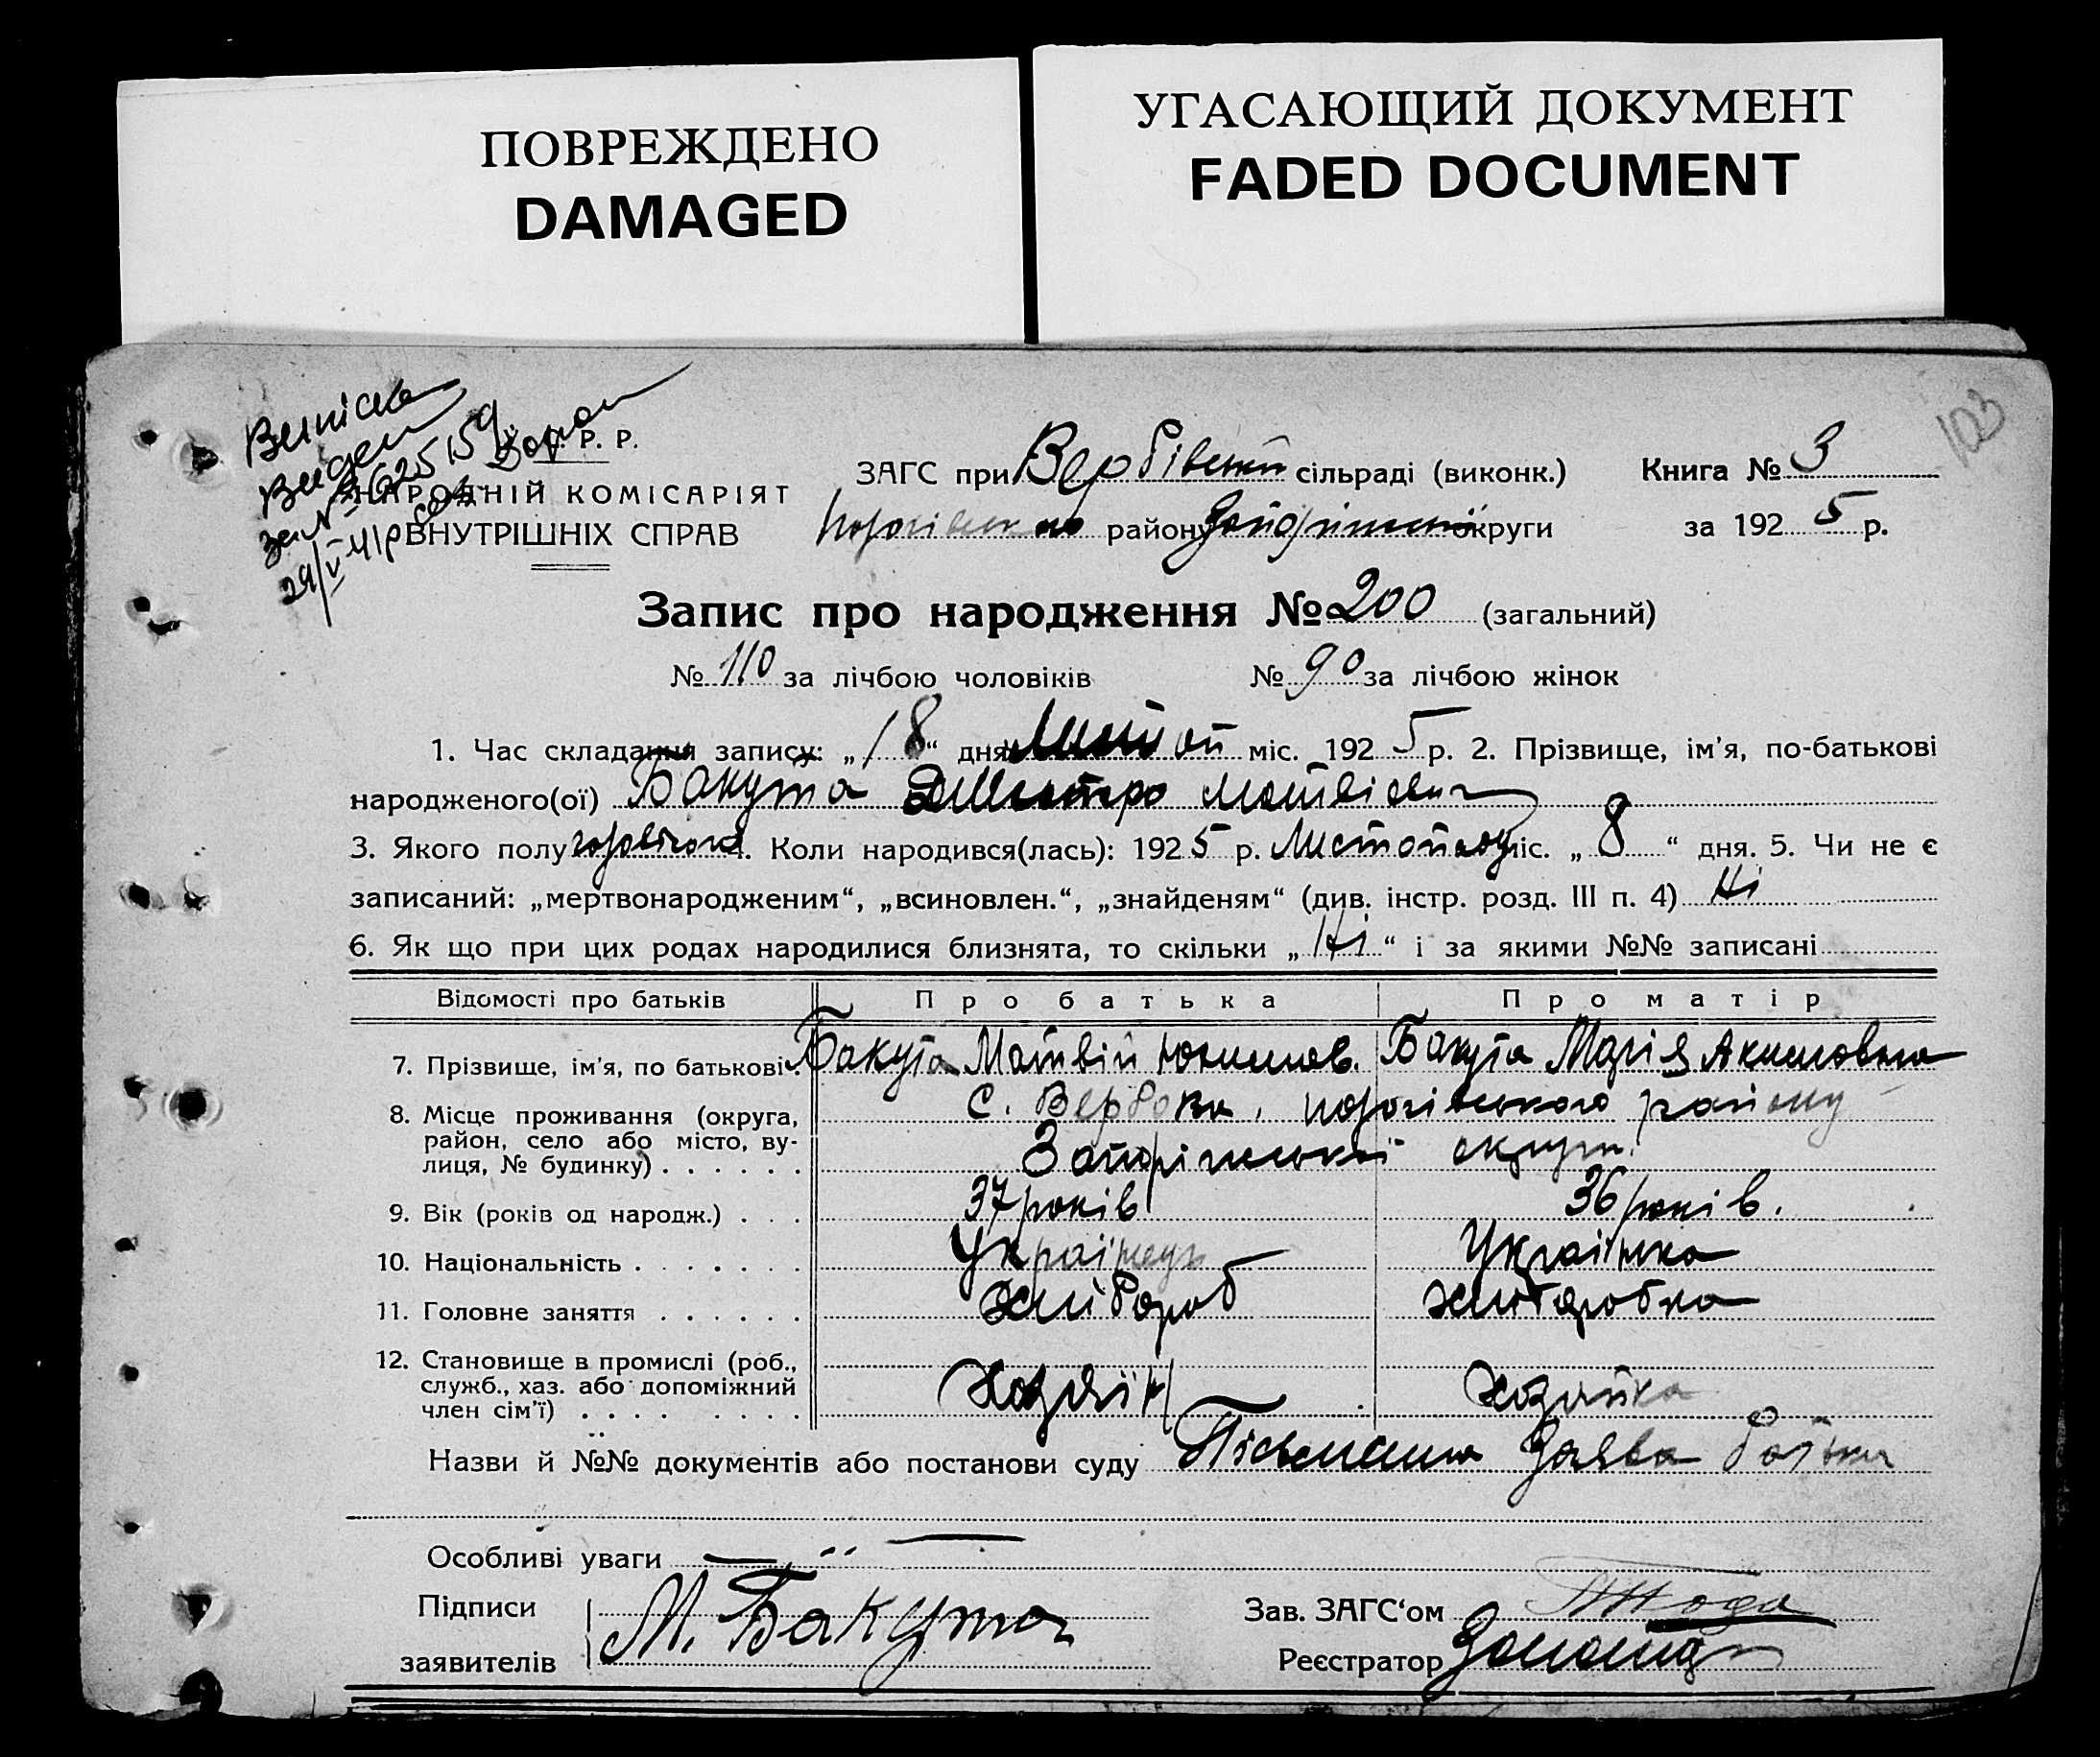 ПОВРЕЖДЕНО
DAMAGED
УГАСАЮЩИЙ ДОКУМЕНТ
FADED DOCUMENT
103
Р. Р.
НАРОДНІЙ КОМІСАРІЯТ
ВНУТРІШНІХ СПРАВ
ЗАГС при Вербівській сільраді (виконк.) Книга № 3
району округи за 1925 р.
Запис про народження № 200 (загальний)
№ 110 за лічбою чоловіків № 90 за лічбою жінок
1. Час складання запису: „18“ дня міс. 1925 р. 2. Прізвище, ім'я, по-батькові
народженого(ої) Бакута Дмитро Матвієвич
3. Якого полу чоловічого 4. Коли народився(лась): 1925 р. Листопаду міс. „8“ дня. 5. Чи не є
записаний: „мертвонародженим“, „всиновлен.“, „знайденям“ (див. інстр. розд. III п. 4) Ні
6. Як що при цих родах народилися близнята, то скільки „Ні“ і за якими №№ записані
Відомості про батьків Про батька Про матір
7. Прізвище, ім'я, по батькові . Бакута Матвій Юхимов. Бакута Марія Акимовна
8. Місце проживання (округа, район, село або місто, вулиця, № будинку) . . . . . . с. Вербова, пологівського району
Запоріжської округи.
9. Вік (років од народж.) . . . 37 років 36 років.
10. Національність . . . . . . . Українець Українка
11. Головне заняття . . . . . . Хлібороб хліборобка
12. Становище в промислі (роб., служб., хаз. або допоміжний член сім'ї) . . . . . . . . Хозяїн хозяйка
Назви й №№ документів або постанови суду Пісьменна Заява батька
Особливі уваги
Підписи
заявителів М. Бакута
Зав. ЗАГС‘ом
Реєстратор